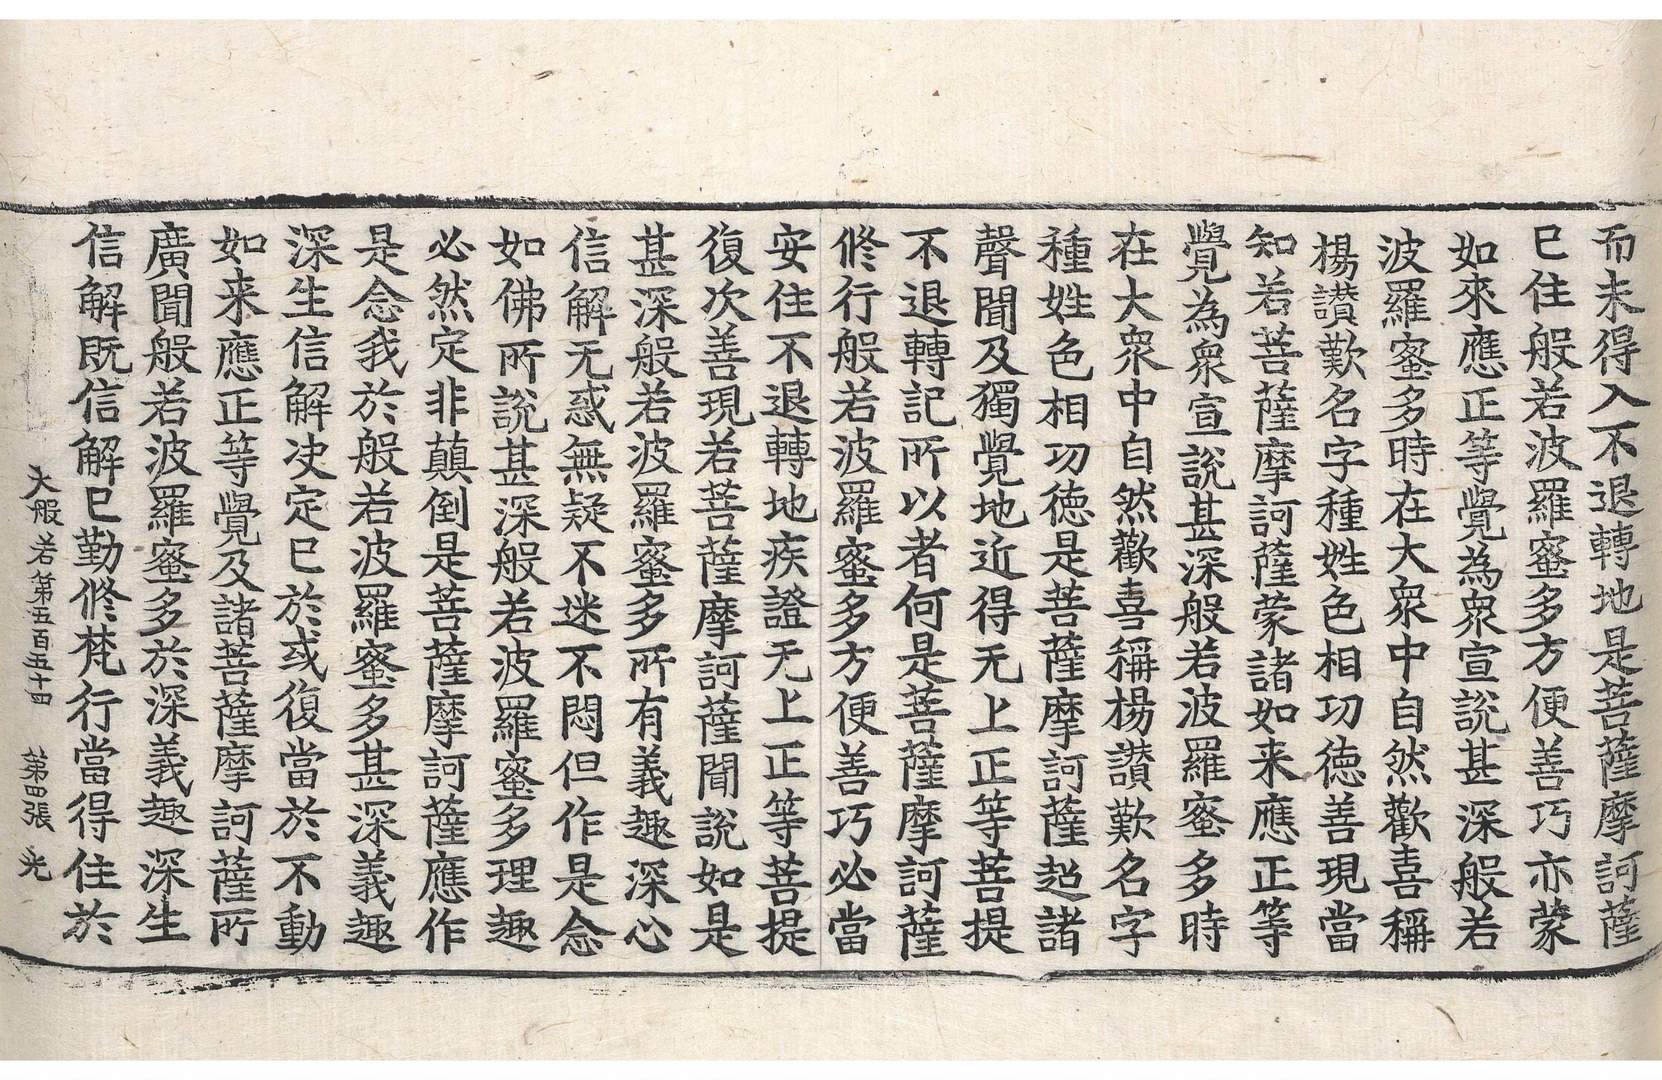 而未得入不退轉地是菩薩摩訶薩
已住般若波羅蜜多方便善巧亦蒙
如來應正等覺為衆宣說甚深般若
波羅蜜多時在大衆中自然歡喜稱
楊讃歎名字種姓色相功徳善現當
知若菩薩摩訶薩蒙諸如来應正等
覺為衆宣說甚深般若波羅蜜多時
在大衆中自然歡喜稱楊讃歎名字
種姓色相功徳是菩薩摩訶薩超諸
聲聞及獨覺地近得无上正等菩提
不退轉記所以者何是菩薩摩訶薩
修行般若波羅蜜多方便善巧必當
安住不退轉地疾證无上正等菩提
復次善現若菩薩摩訶薩聞說如是
甚深般若波羅蜜多所有義趣深心
信解无惑無疑不迷不悶但作是念
如佛所說甚深般若波羅蜜多理趣
必然定非顛倒是菩薩摩訶薩應作
是念我於般若波羅蜜多甚深義趣
深生信解决定已於或復當於不動
如来應正等覺及諸菩薩摩訶薩所
廣聞般若波羅蜜多於深義趣深生
信解既信解已勤修梵行當得住於
大般若第五百五十四 第四張 光